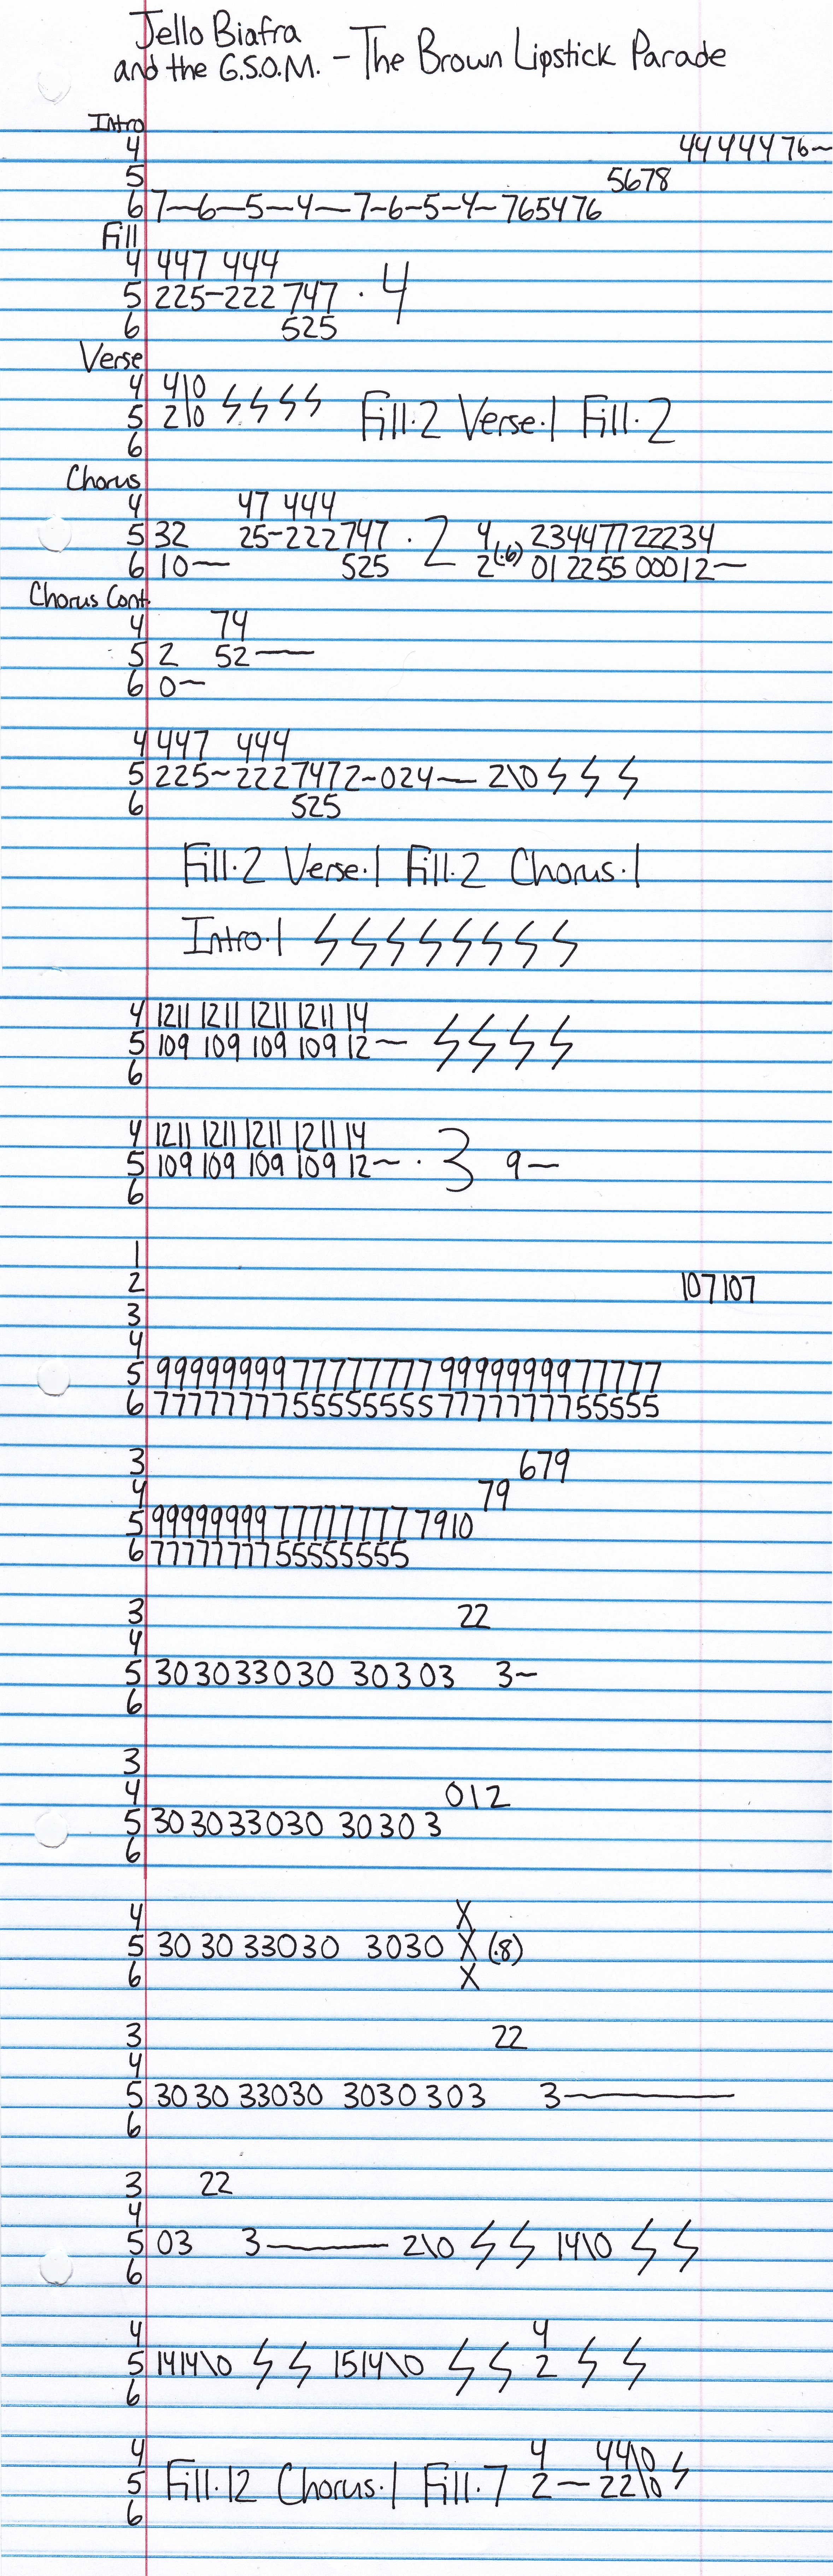 Jello Biafra
and the G.S.O.M. - The Brown Lipstick Parade
Intro
4 44 444 4 76~
5 5678
6 7—6—5—4—7-6-5-4-765476
Fill
4 447 444
5 225-222 747 · 4
6 525
Verse
4 4\0
5 2\0 ϟ ϟ ϟ ϟ Fill·2 Verse·1 Fill·2
6
Chorus
4 47 444
5 32 25-222747 · 2 4 23447722234
6 10— 525 2(·6) 01 2255 00012—
Chorus Cont.
4 74
5 2 52—
6 0~
4 447 444
5 225~2227472-024— 2\0 ϟ ϟ ϟ
6 525
Fill·2 Verse·1 Fill·2 Chorus·1
Intro·1 ϟ ϟ ϟ ϟ ϟ ϟ ϟ ϟ
4 1211 1211 1211 1211 14
5 109 109 109 109 12~ ϟ ϟ ϟ ϟ
6
4 1211 1211 1211 1211 14
5 109 109 109 109 12~ · 3 9—
6
1
2 107107
3
4
5 99999999 77777777 99999999 77777
6 77777777 55555555 77777777 55555
3 679
4 79
5 99999999 77777777 7910
6 77777777 55555555
3 22
4
5 30 3033030 30303 3~
6
3
4 012
5 30 3033030 30303
6
4 X
5 30 30 33030 3030 X (·8)
6 X
3 22
4
5 30 30 33030 3030 303 3—
6
3 22
4
5 03 3— 2\0 ϟ ϟ 14\0 ϟ ϟ
6
4 4
5 1414\0 ϟ ϟ 1514\0 ϟ ϟ 2 ϟ ϟ
6
4 4 44\0
5 Fill·12 Chorus·1 Fill·7 2—22\0 ϟ
6